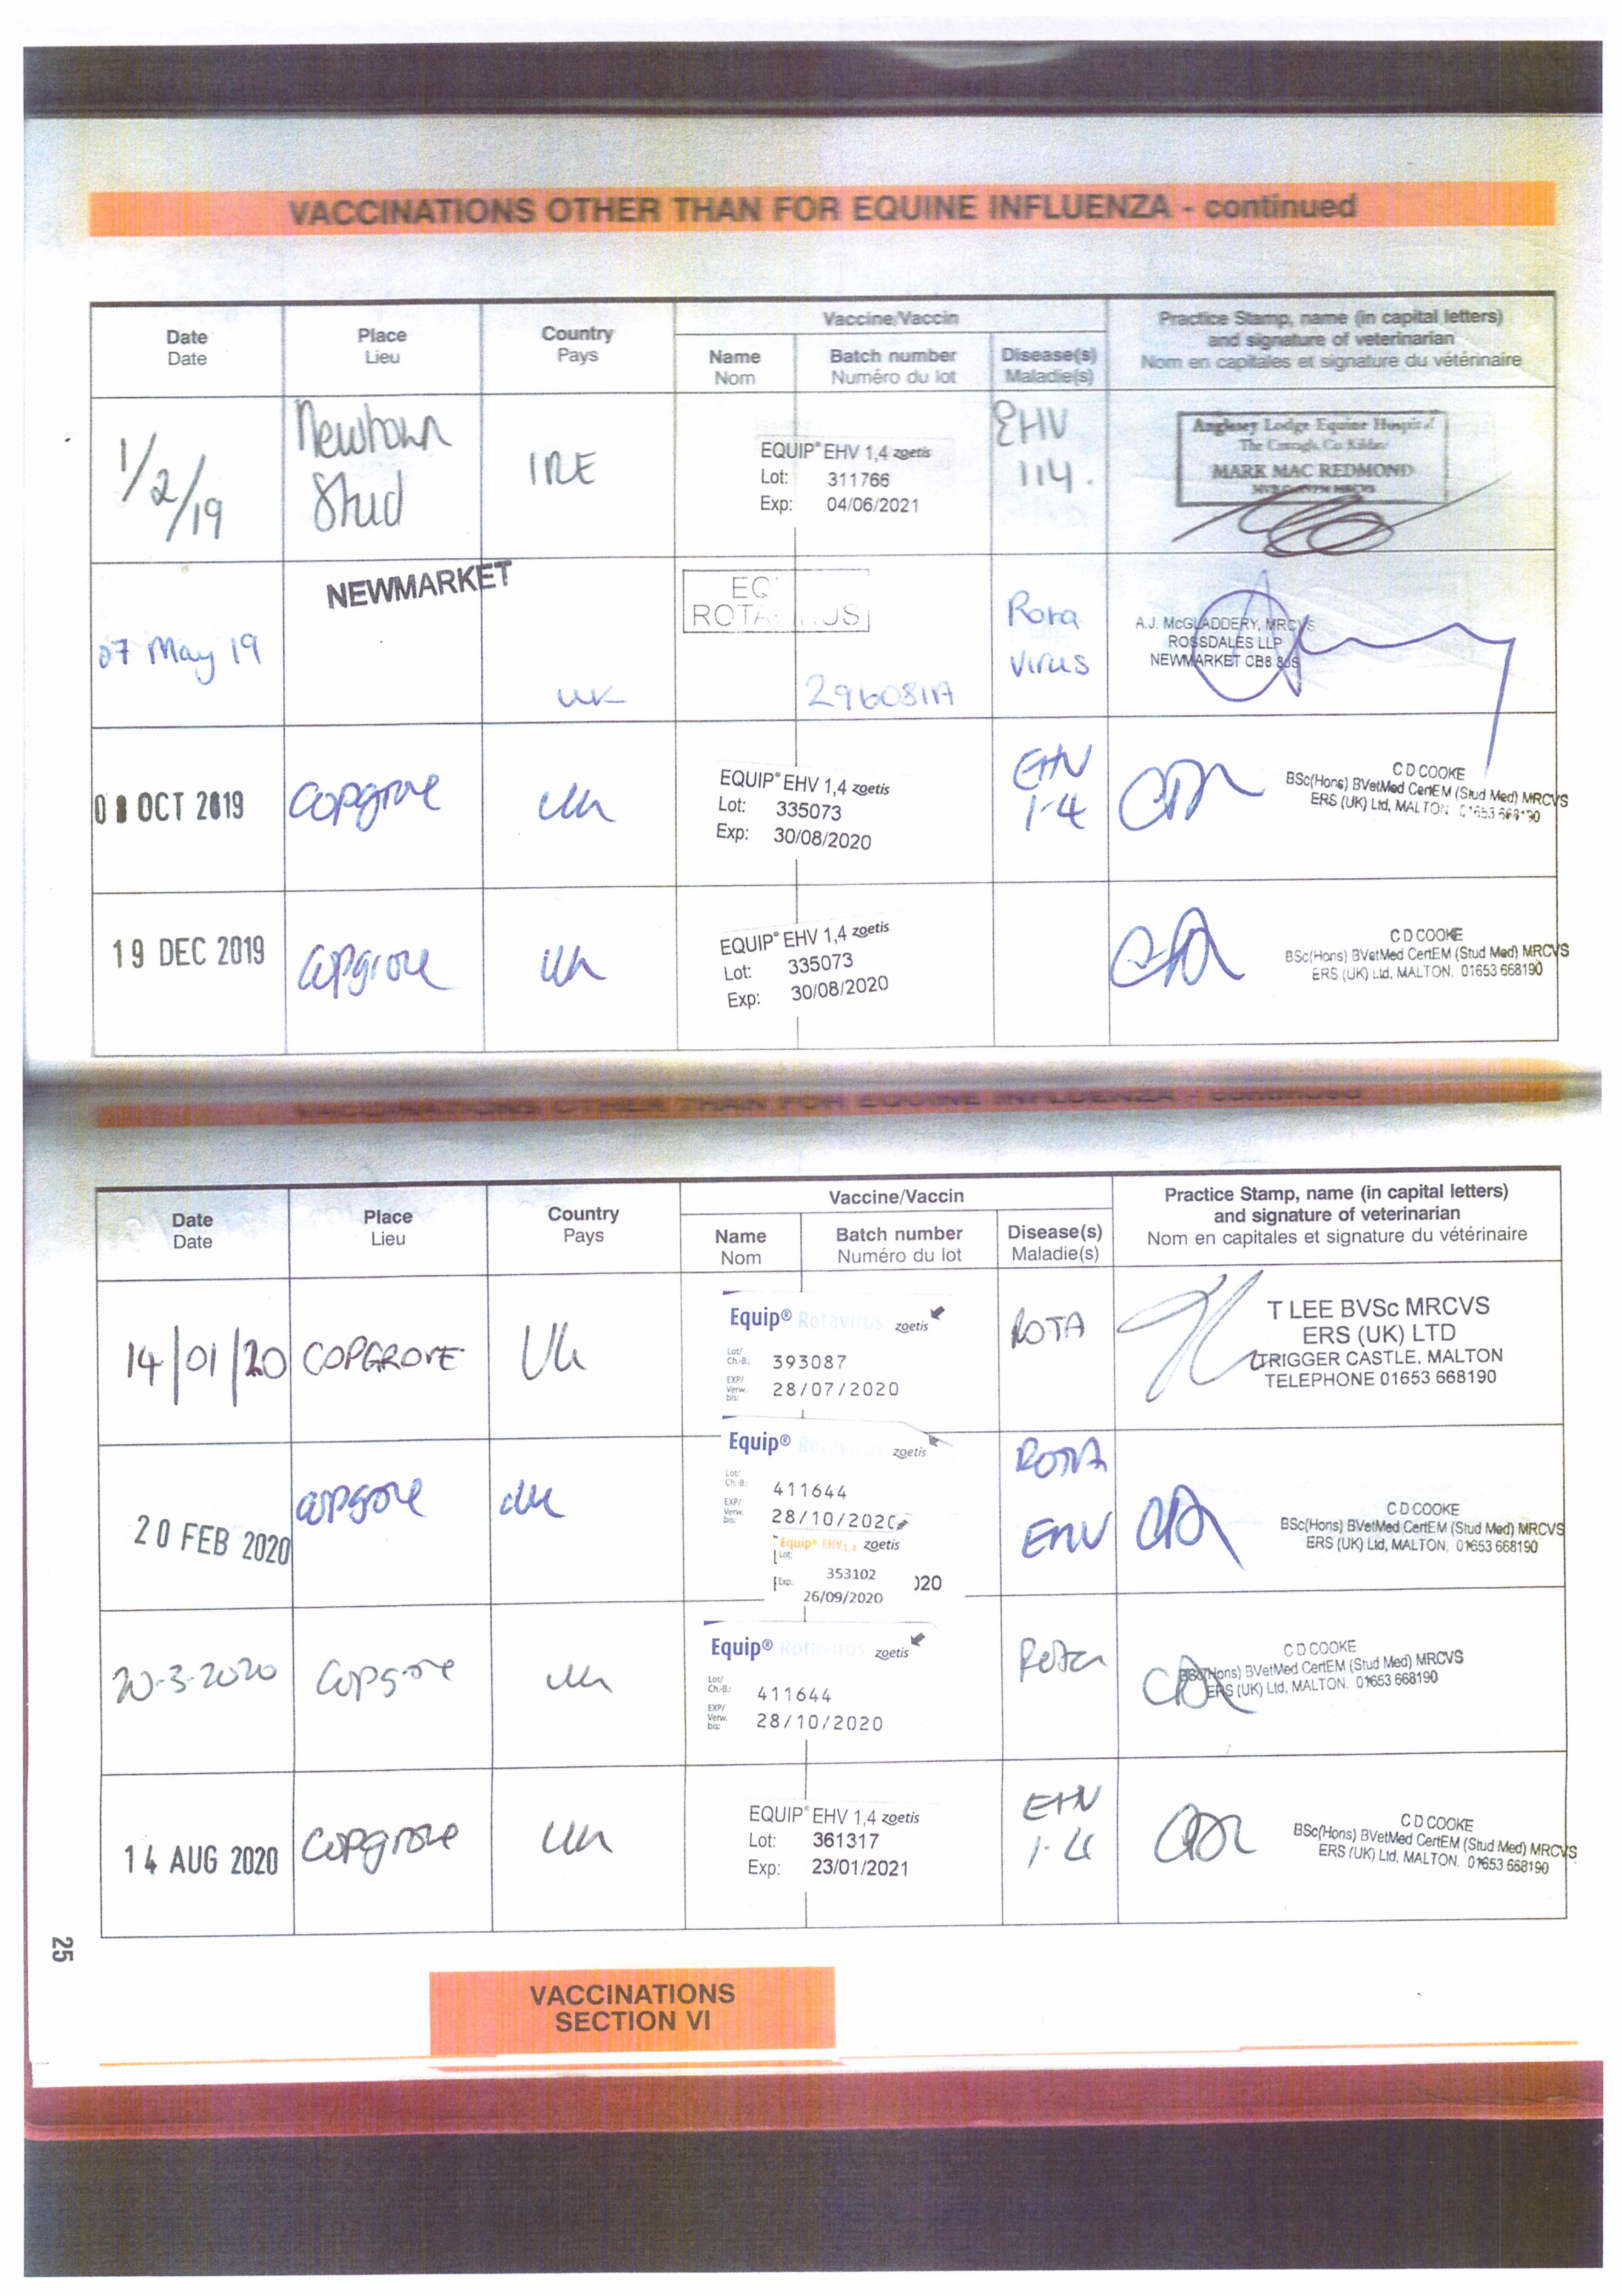 VACCINATIONS OTHER THAN FOR EQUINE INFLUENZA - continued
Date
Date
Place
Lieu
Country
Pays
Vaccine/Vaccin
Name
Nom
Batch number
Numéro du lot
Disease(s)
Maladie(s)
Practice Stamp, name (in capital letters)
and signature of veterinarian
Nom en capitales et signature du vétérinaire
1/2/19
Newtown
Stud
IRE
EQUIP® EHV 1,4 zoetis
Lot: 311766
Exp: 04/06/2021
EHV
114.
Anglesey Lodge Equine Hospital
The Curragh, Co Kildare
MARK MAC REDMOND
07 May 19
NEWMARKET
UK
EQ
ROTA US
296081A
Rota
Virus
A.J. McGLADDERY, MRCVS
ROSSDALES LLP
NEWMARKET CB8 8JS
08 OCT 2019
Copgrove
UK
EQUIP® EHV 1,4 zoetis
Lot: 335073
Exp: 30/08/2020
EHV
1-4
C D COOKE
BSc(Hons) BVetMed CertEM (Stud Med) MRCVS
ERS (UK) Ltd, MALTON 01653 668190
19 DEC 2019
Copgrove
UK
EQUIP® EHV 1,4 zoetis
Lot: 335073
Exp: 30/08/2020
C D COOKE
BSc(Hons) BVetMed CertEM (Stud Med) MRCVS
ERS (UK) Ltd, MALTON. 01653 668190
VACCINATIONS OTHER THAN FOR EQUINE INFLUENZA - continued
Date
Date
Place
Lieu
Country
Pays
Vaccine/Vaccin
Name
Nom
Batch number
Numéro du lot
Disease(s)
Maladie(s)
Practice Stamp, name (in capital letters)
and signature of veterinarian
Nom en capitales et signature du vétérinaire
14/01/20
COPGROVE
UK
Equip® Rotavirus zoetis
Lot/
Ch.-B.: 393087
EXP/
Verw.
bis: 28/07/2020
ROTA
T LEE BVSc MRCVS
ERS (UK) LTD
TRIGGER CASTLE. MALTON
TELEPHONE 01653 668190
20 FEB 2020
Copgrove
UK
Equip® Rotavirus zoetis
Lot/
Ch.-B.: 411644
EXP/
Verw.
bis: 28/10/2020
Equip® EHV1,4 zoetis
Lot:
353102
Exp. 020
26/09/2020
ROTA
EHV
C D COOKE
BSc(Hons) BVetMed CertEM (Stud Med) MRCVS
ERS (UK) Ltd, MALTON. 01653 668190
20-3-2020
Copgrove
UK
Equip® Rotavirus zoetis
Lot/
Ch.-B.: 411644
EXP/
Verw.
bis: 28/10/2020
Rota
C D COOKE
BSc(Hons) BVetMed CertEM (Stud Med) MRCVS
ERS (UK) Ltd, MALTON. 01653 668190
14 AUG 2020
Copgrove
UK
EQUIP® EHV 1,4 zoetis
Lot: 361317
Exp: 23/01/2021
EHV
1-4
C D COOKE
BSc(Hons) BVetMed CertEM (Stud Med) MRCVS
ERS (UK) Ltd, MALTON. 01653 668190
25
VACCINATIONS
SECTION VI